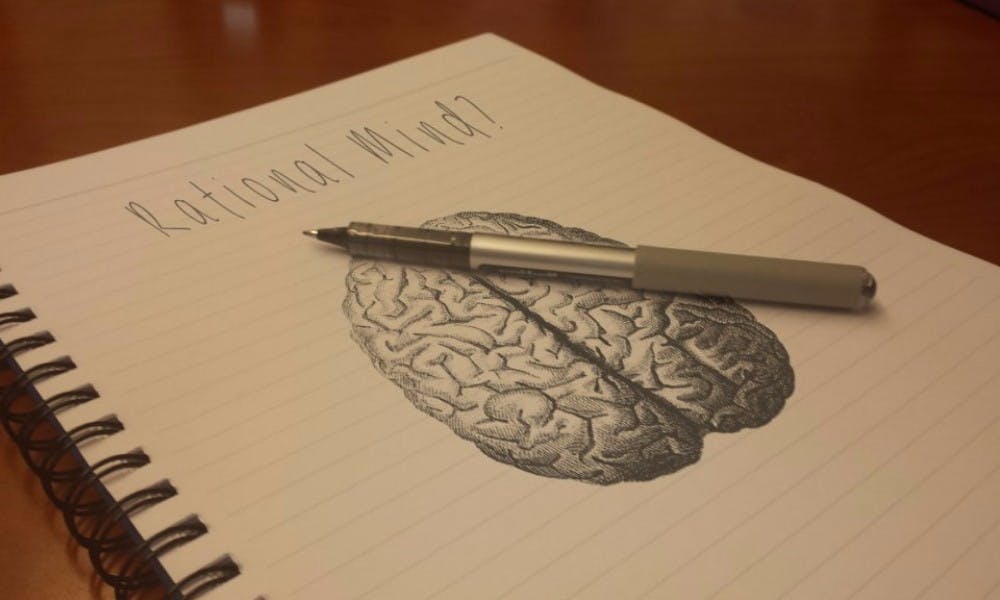 Rational Mind?